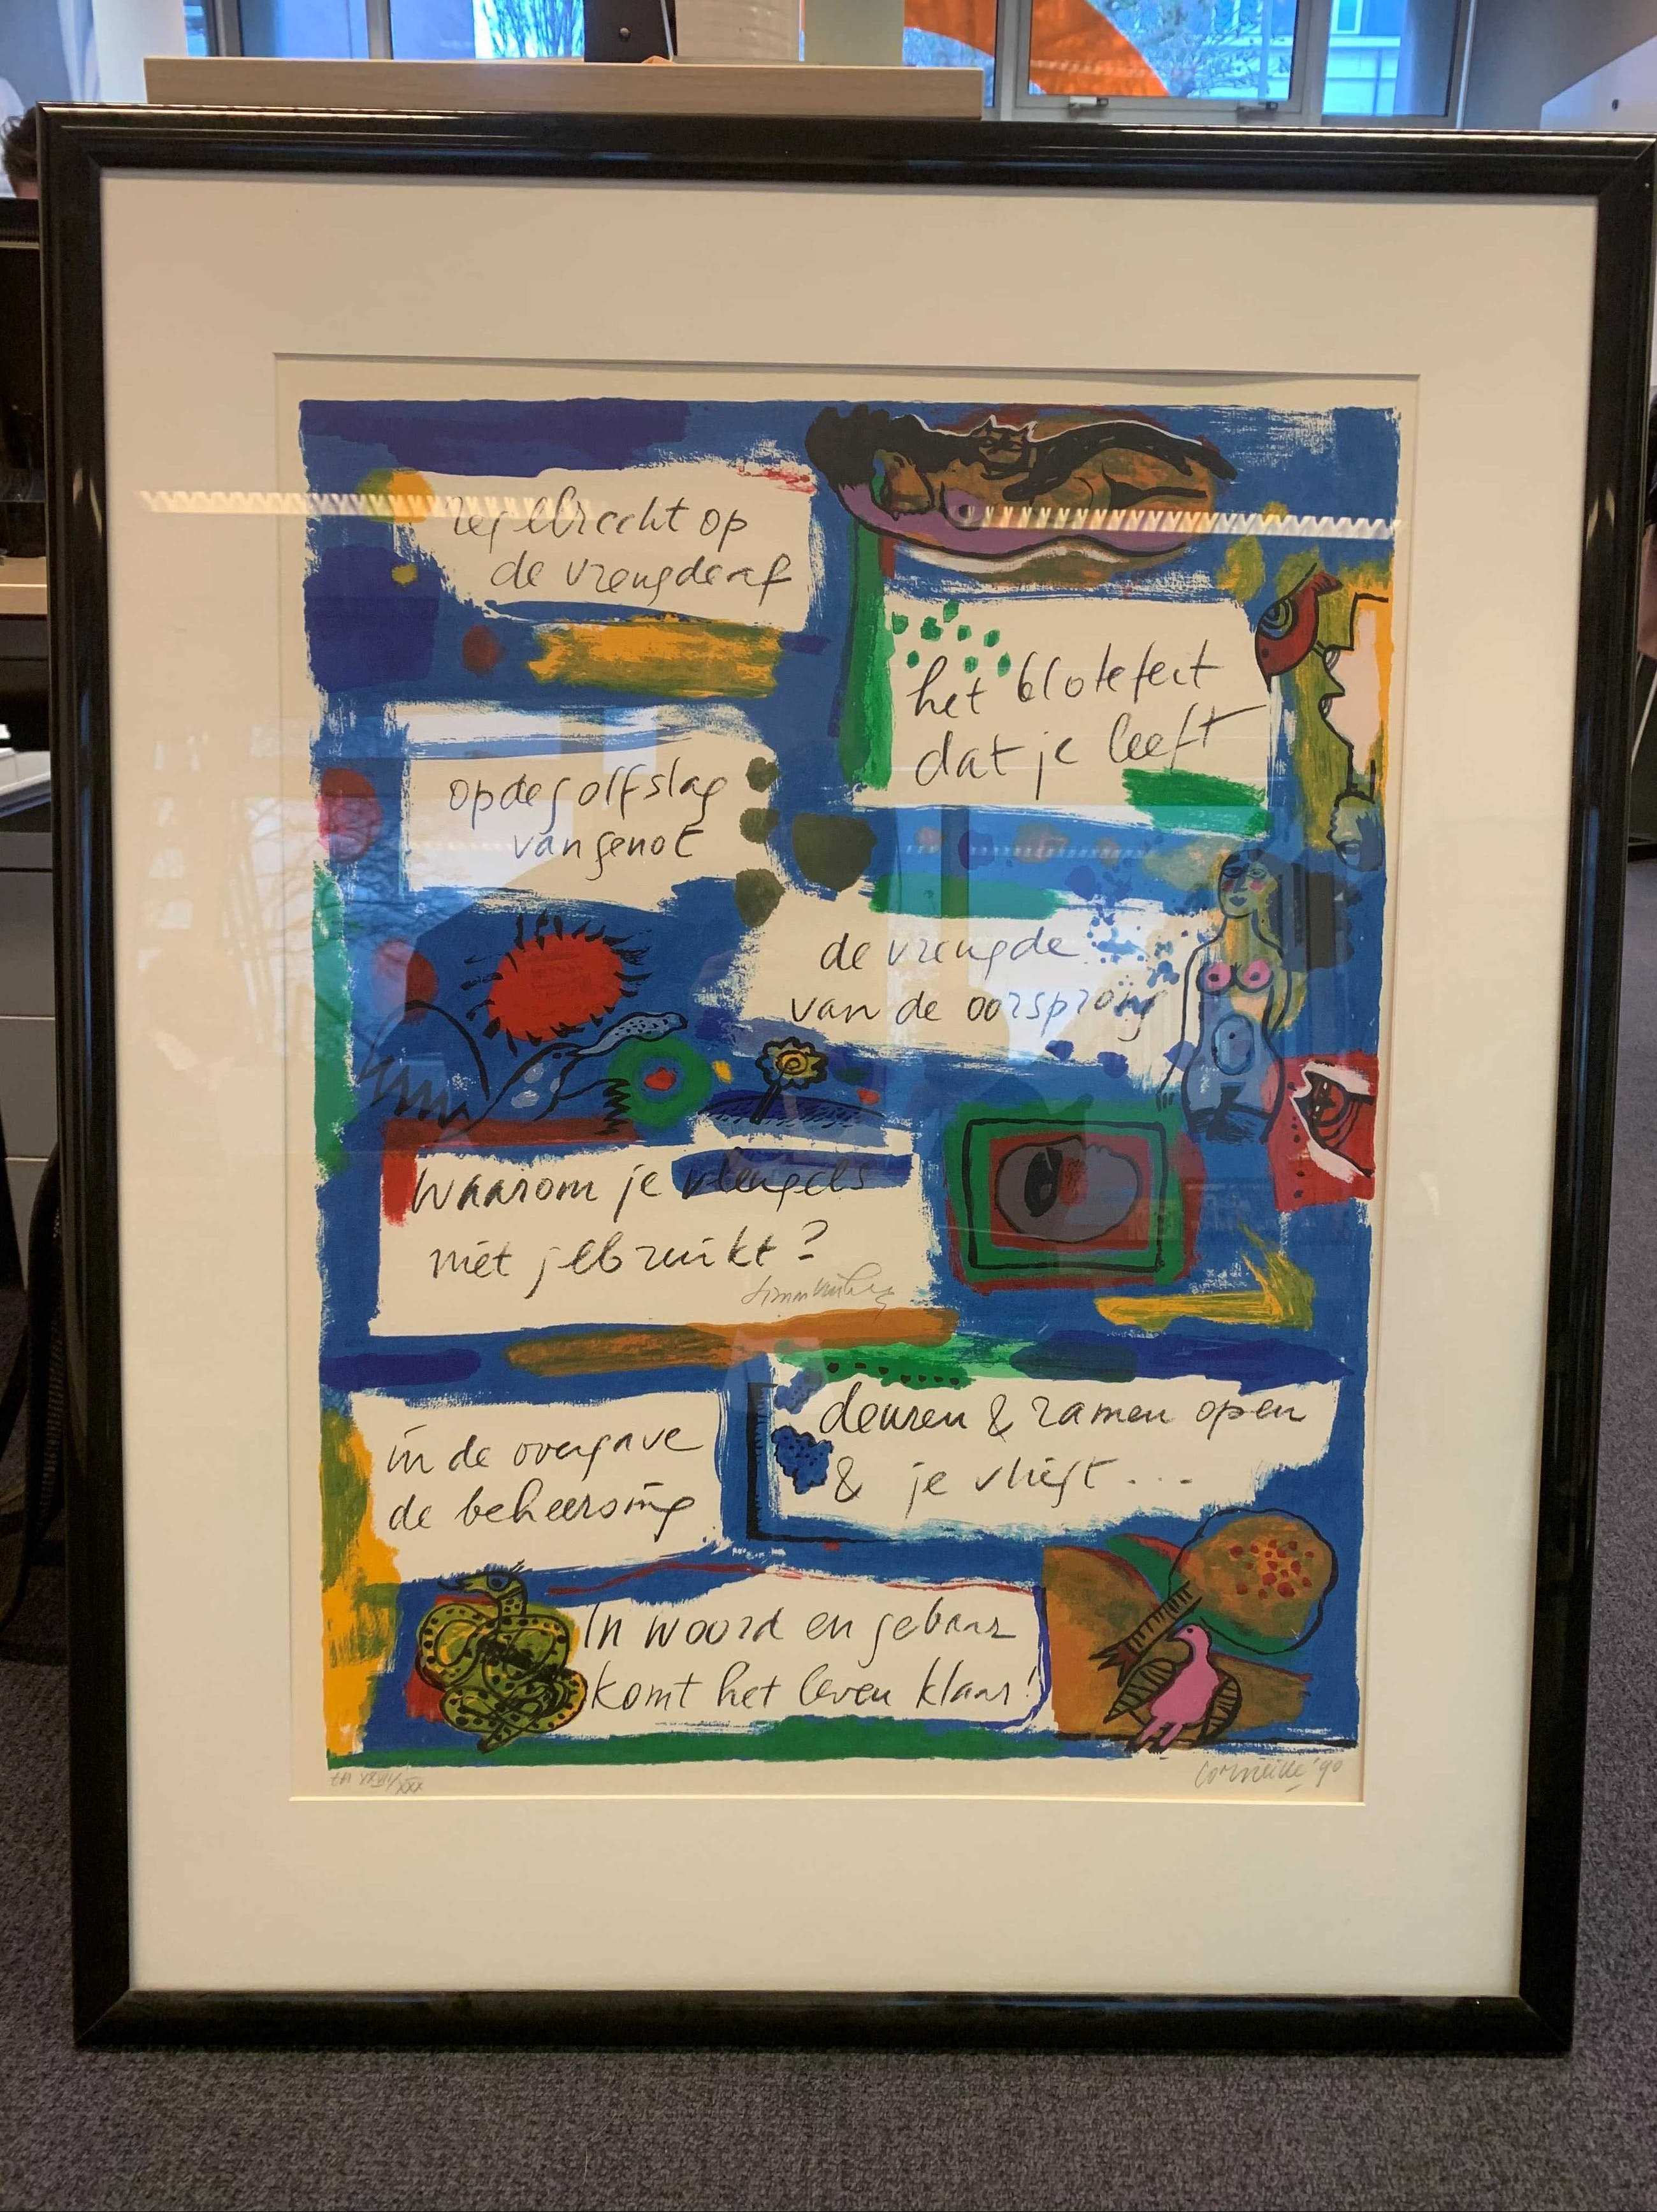 regelrecht op
de vreugde af
het blote feit
dat je leeft
op de golfslag
van genot
de vreugde
van de oorsprong
Waarom je vleugels
niet gebruikt?
in de overgave
de beheersing
deuren & ramen open
& je vliegt...
In woord en gebaar
komt het leven klaar!
EA XXVIII/XXX
Corneille '90